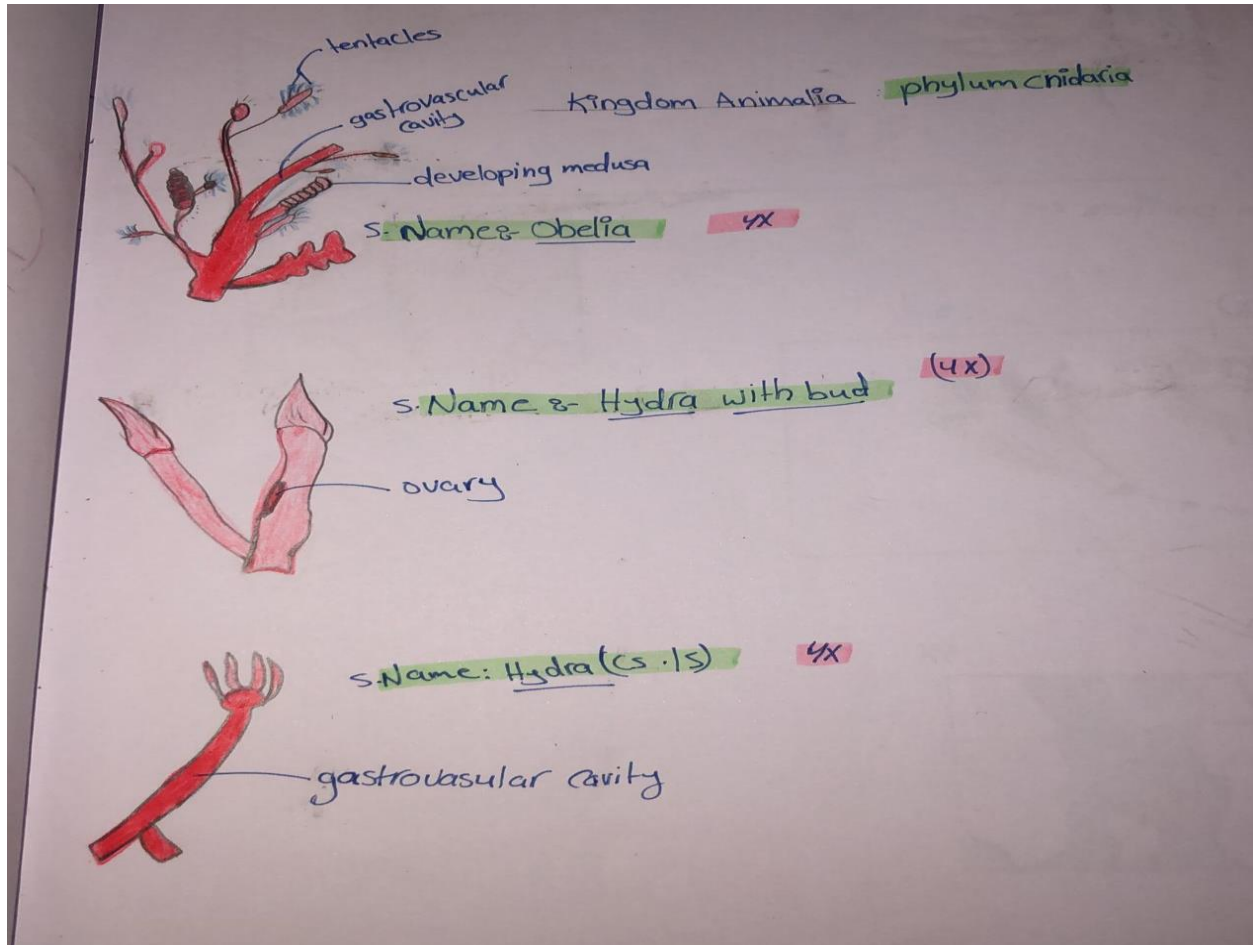 tentacles
gastrovascular
cavity
Kingdom Animalia phylum cnidaria
developing medusa
S. Name:- Obelia 4X
S. Name:- Hydra with bud (4X)
ovary
S.Name: Hydra (cs.ls) 4X
gastrovasular cavity